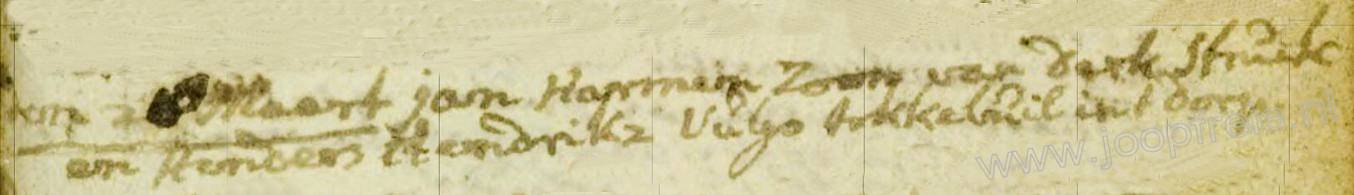 Maart jan Harmen Zoon van derk Struik
en Hendrikz Vulgo tokkebuil int dorp
www.jooptrola.nl